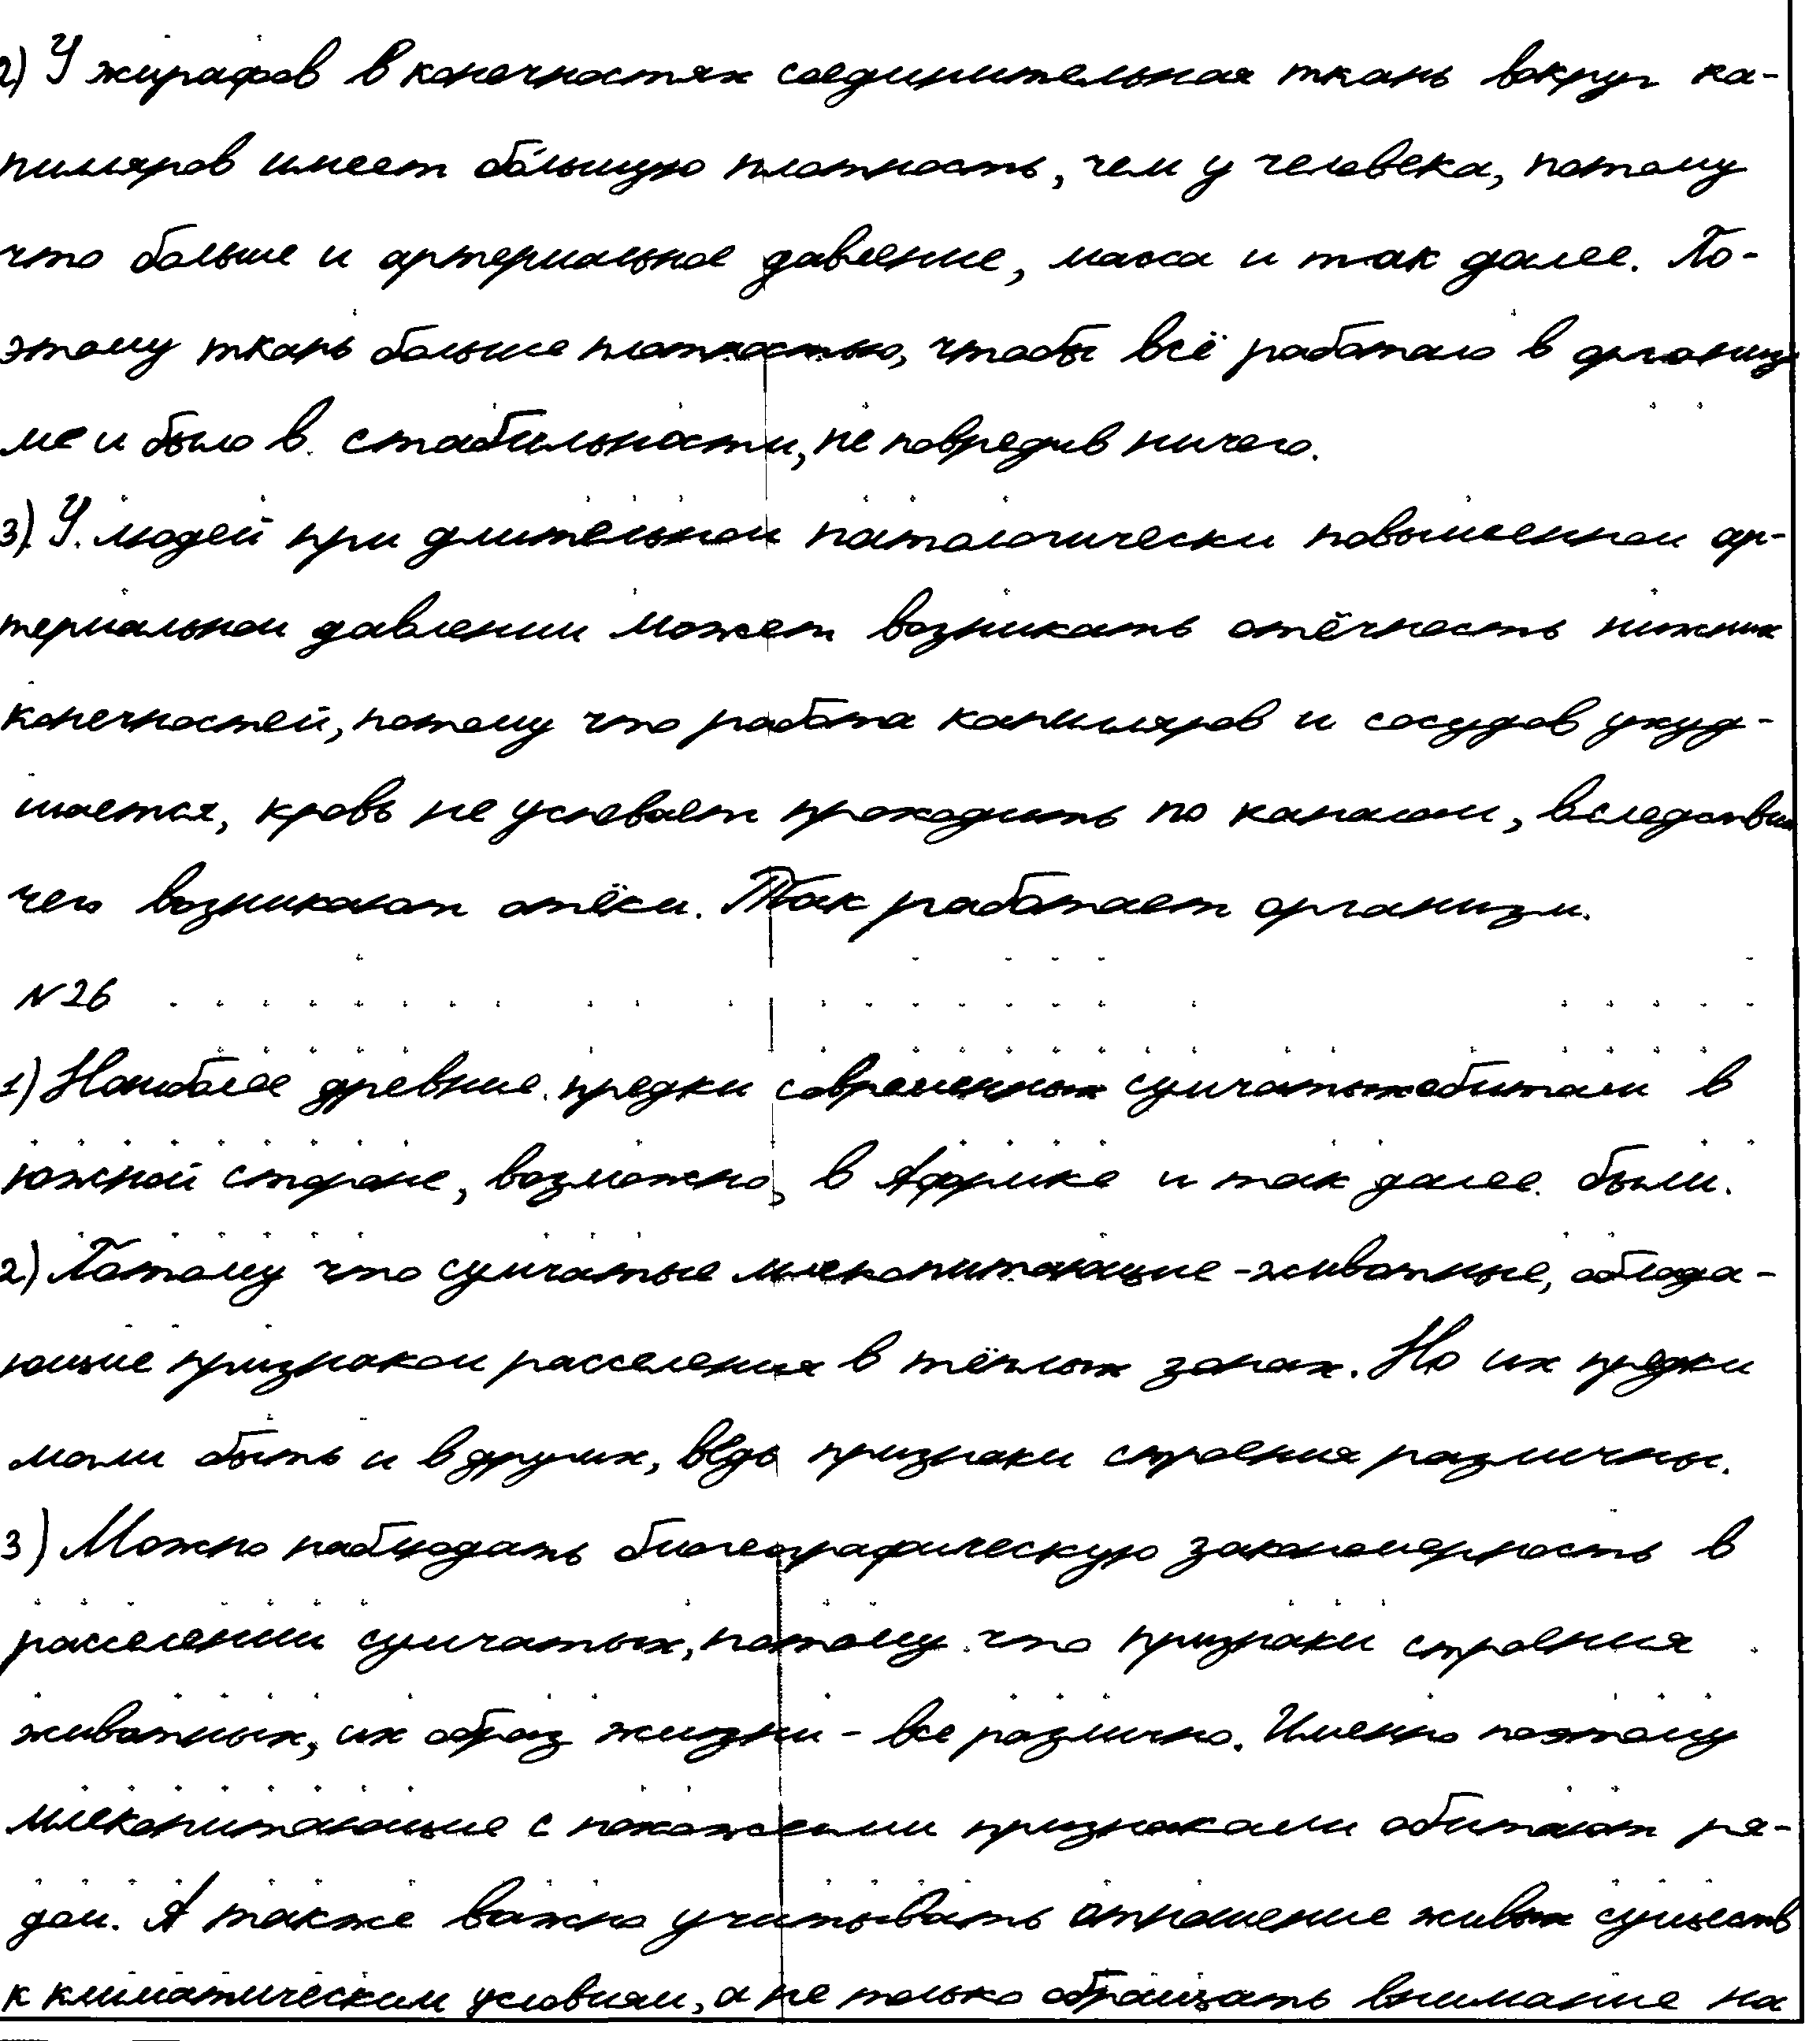 2) У жирафов в конечностях соединительная ткань вокруг ка-
пиляров имеет большую плотность, чем у человека, потому
что больше и артериальное давление, масса и так далее. По-
этому ткань больше плотностью, чтобы всё работало в организ
ме и было в стабильности, не повредив ничего.
3) У людей при длительном патологически повышенном ар-
териальном давлении может возникать отёчность нижних
конечностей, потому что работа капиляров и сосудов ухуд-
шается, кровь не успевает проходить по каналам, вследствии
чего возникают отёки. Так работает организм.
№26
1) Наиболее древние предки современных сумчатых обитали в
южной стороне, возможно, в Африке и так далее были.
2) Потому что сумчатые млекопитающие - животные, облада-
ющие признаком расселения в тёплых зонах. Но их предки
могли быть и в других, ведь признаки строения различны.
3) Можно наблюдать биогеографическую закономерность в
расселении сумчатых, потому что признаки строения
животных, их образ жизни - все различно. Именно поэтому
млекопитающие с похожими признаками обитают ря-
дом. А также важно учитывать отношение живых существ
к климатическим условиям, а не только обращать внимание на